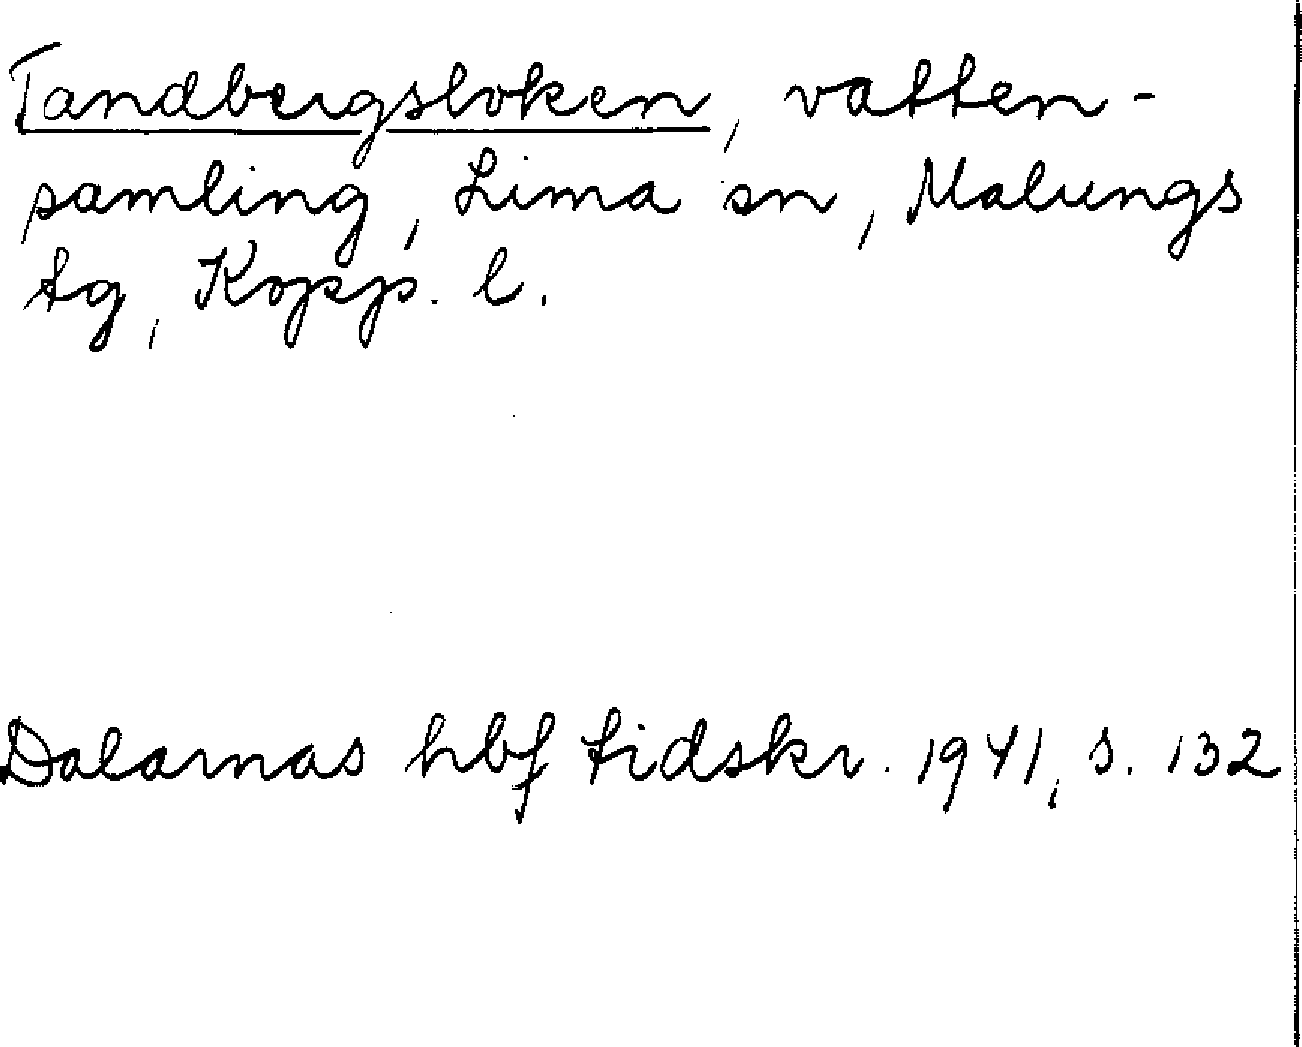 Tandbergsloken, vatten-
samling, Lima sn, Malungs
tg, Kopp. l.
Dalarnas hbf tidskr. 1941, s. 132